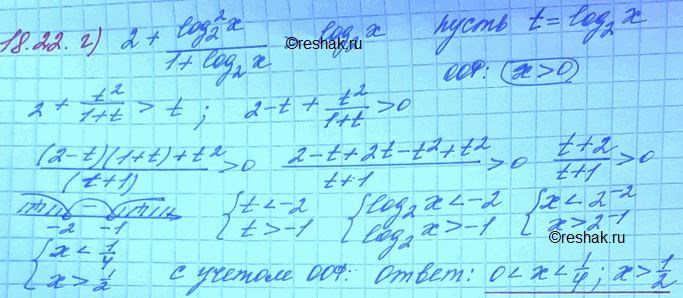 18.22. г) 2 + log₂²x / (1 + log₂x) > log₂x пусть t = log₂x
©reshak.ru
ООФ: x>0
2 + t²/(1+t) > t; 2-t + t²/(1+t) >0
((2-t)(1+t)+t²)/(t+1) >0 (2-t+2t-t²+t²)/(t+1) >0 (t+2)/(t+1) >0
-2 - -1 { t<-2 t>-1 { log₂x<-2 log₂x>-1 { x<2⁻² x>2⁻¹
{ x<1/4 x>1/2 с учетом ООФ: ответ: 0<x<1/4; x>1/2
©reshak.ru